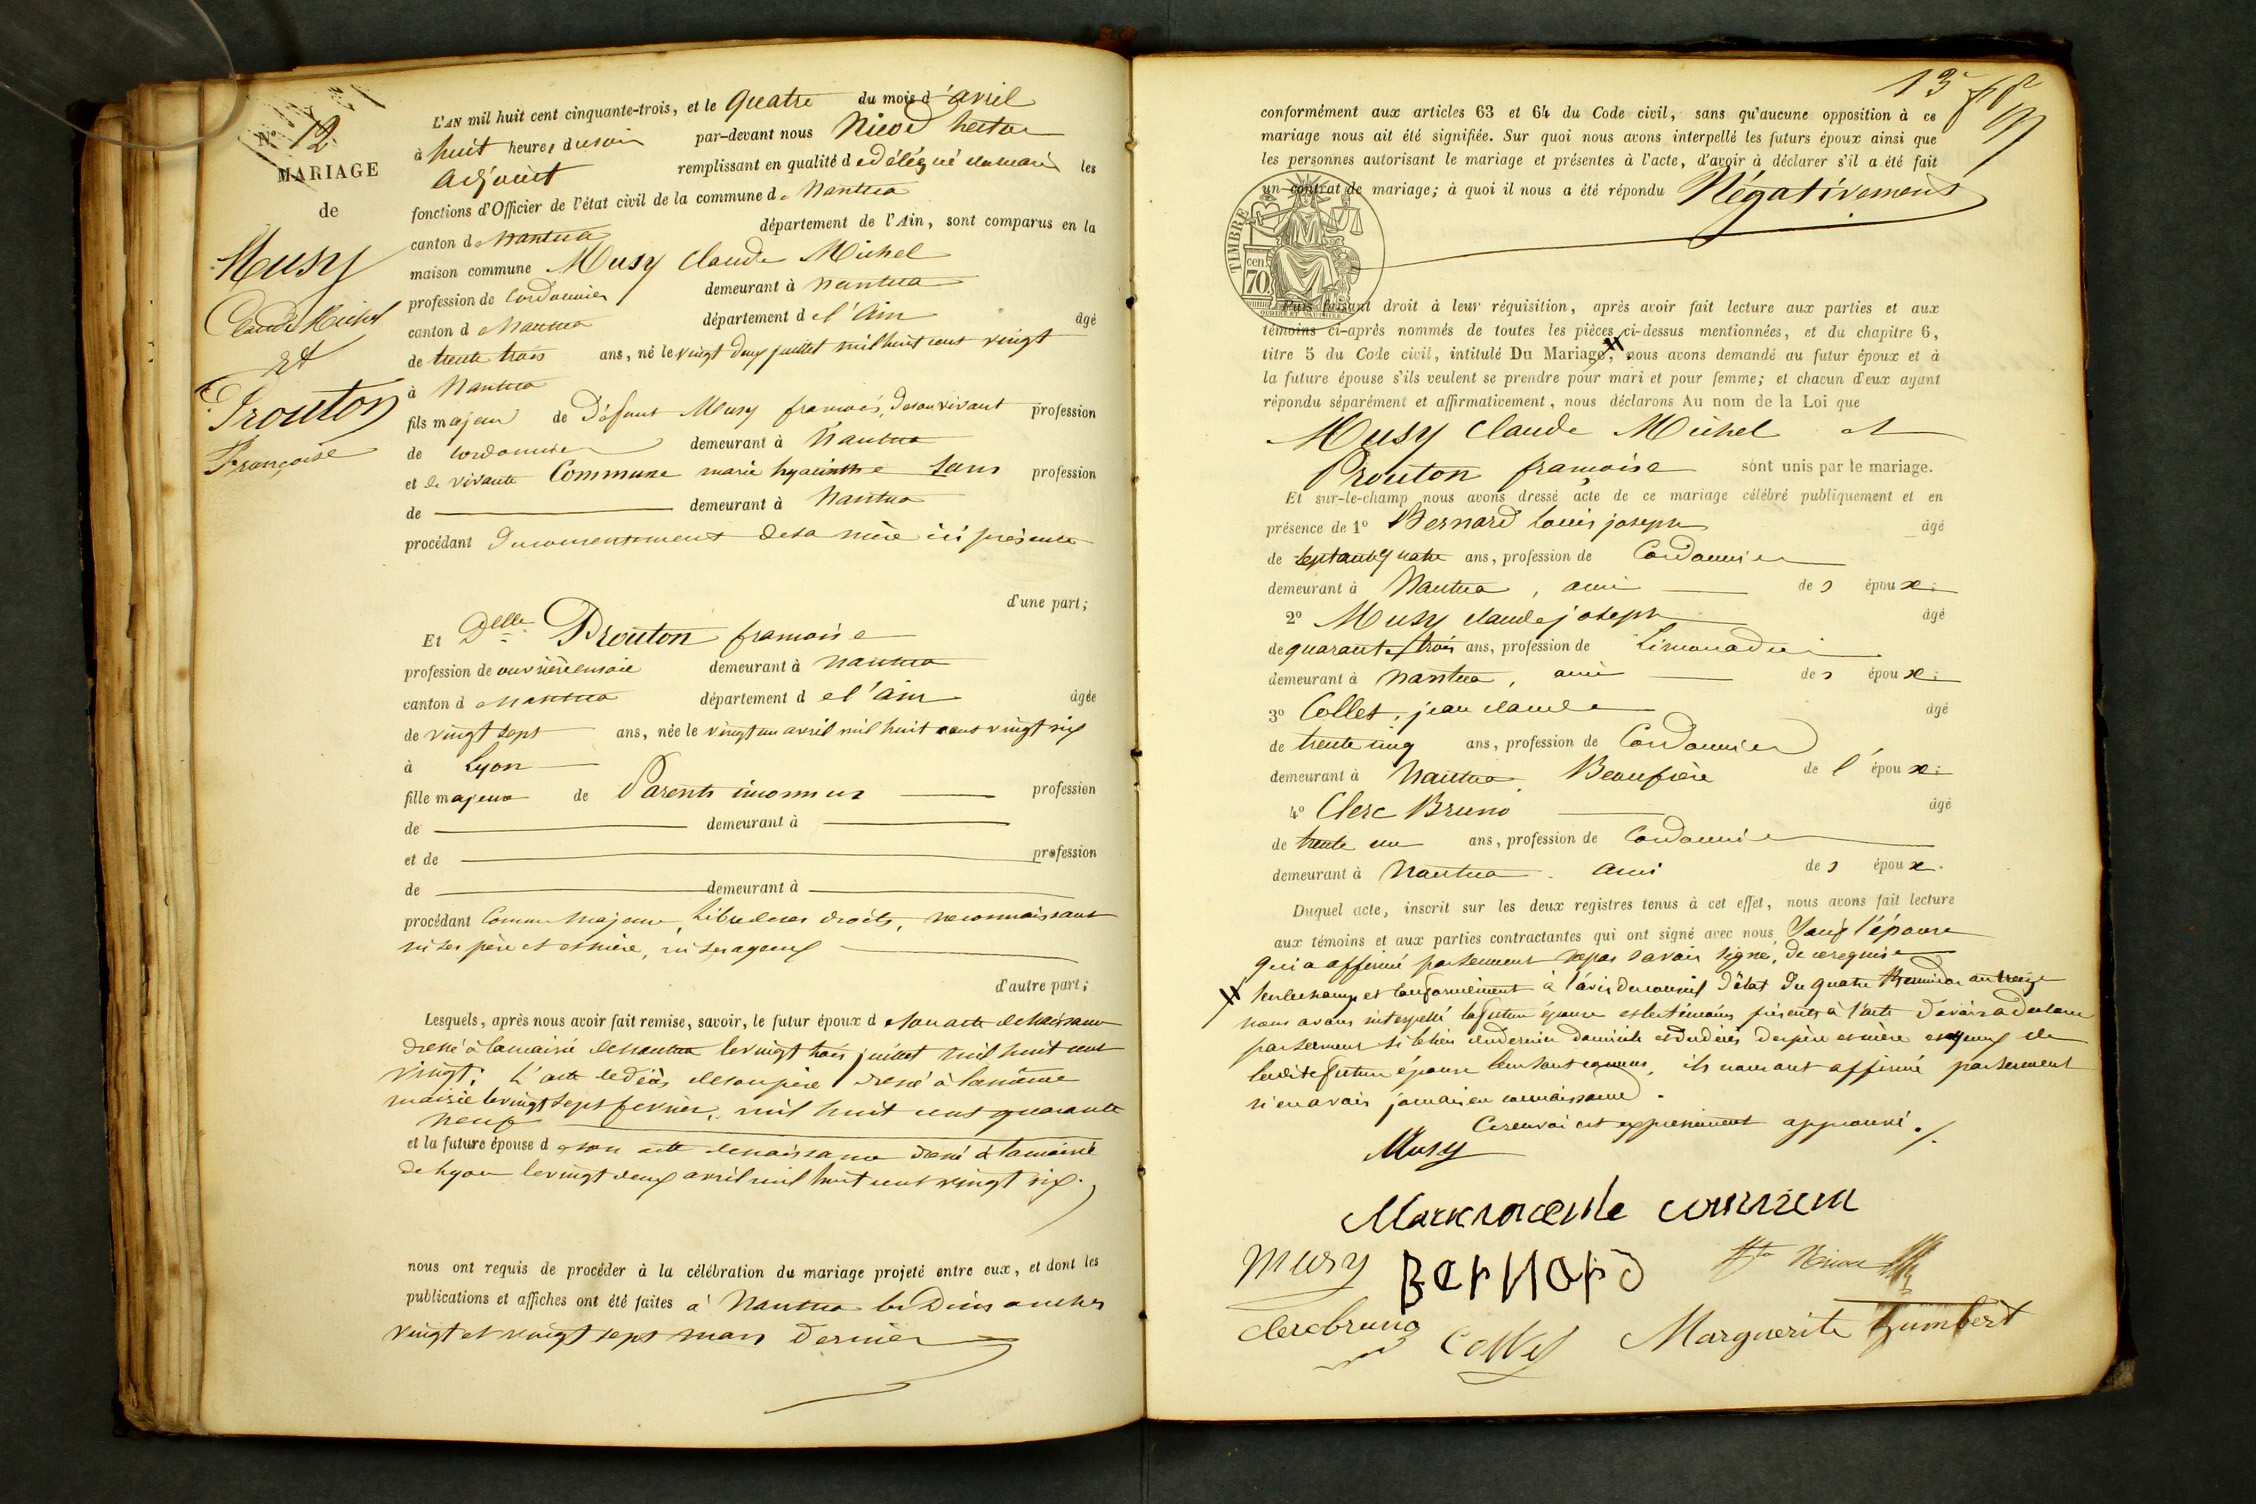 No 12.
MARIAGE
de
Musy
Claude Michel
et
Prouton
Françoise
L'AN mil huit cent cinquante-trois, et le quatre du mois d'avril
à huit heures du soir par-devant nous Nicod hector
adjoint remplissant en qualité de délégué du maire les
fonctions d'Officier de l'état civil de la commune de Nantua
canton de Nantua département de l'Ain, sont comparus en la
maison commune Musy Claude Michel
profession de Cordonnier demeurant à Nantua
canton de Nantua département de l'Ain âgé
de trente trois ans, né le vingt deux juillet mil huit cent vingt
à Nantua
fils majeur de Défunt Musy francois, de son vivant profession
de cordonnier demeurant à Nantua
et de vivante Commune marie hyacinthe Sans profession
de demeurant à Nantua
procédant du consentement de sa mère ici présente
d'une part;
Et Delle Prouton francoise
profession de ouvrière en soie demeurant à Nantua
canton de Nantua département de l'ain âgée
de vingt sept ans, née le vingt un avril mil huit cent vingt six
à Lyon
fille majeure de Parents inconnus profession
de demeurant à
et de profession
de demeurant à
procédant Comme Majeure, Libre de ses droits, ne connaissant
ni ses père et et mère, ni ses ayeux
d'autre part;
Lesquels, après nous avoir fait remise, savoir, le futur époux de son acte de naissance
dressé à la mairie de Nantua le vingt trois juillet mil huit cent
vingt; L'acte de décès de son père dressé à la même
mairie le vingt sept fevrier, mil huit cent quarante
neuf
et la future épouse de son acte de naissance dressé à la mairie
de Lyon le vingt deux avril mil huit cent vingt six.
nous ont requis de procéder à la célébration du mariage projeté entre eux, et dont les
publications et affiches ont été faites à Nantua les Dimanches
vingt et vingt sept mars dernier
13
conformément aux articles 63 et 64 du Code civil, sans qu'aucune opposition à ce
mariage nous ait été signifiée. Sur quoi nous avons interpellé les futurs époux ainsi que
les personnes autorisant le mariage et présentes à l'acte, d'avoir à déclarer s'il a été fait
un contrat de mariage; à quoi il nous a été répondu Négativement
TIMBRE
70 cen.
Puis faisant droit à leur réquisition, après avoir fait lecture aux parties et aux
témoins ci-après nommés de toutes les pièces ci-dessus mentionnées, et du chapitre 6,
titre 5 du Code civil, intitulé Du Mariage, nous avons demandé au futur époux et à
la future épouse s'ils veulent se prendre pour mari et pour femme; et chacun d'eux ayant
répondu séparément et affirmativement, nous déclarons Au nom de la Loi que
Musy Claude Michel et
Prouton francoise sont unis par le mariage.
Et sur-le-champ nous avons dressé acte de ce mariage célébré publiquement et en
présence de 1o Bernard Louis joseph âgé
de septante quatre ans, profession de Cordonnier
demeurant à Nantua, ami des époux:
2o Musy claude joseph âgé
de quarante trois ans, profession de Limonadier
demeurant à Nantua, ami des époux:
3o Collet, jean claude âgé
de trente cinq ans, profession de Cordonnier
demeurant à Nantua. Beaufrère de l'époux:
4o Clerc Bruno âgé
de trente un ans, profession de Cordonnier
demeurant à Nantua. ami des époux.
Duquel acte, inscrit sur les deux registres tenus à cet effet, nous avons fait lecture
aux témoins et aux parties contractantes qui ont signé avec nous, Sauf l'épouse
qui a affirmé par serment ne pas savoir signé, de ce requise
Sur le champ et conformément à l'avis du conseil d'état du quatre thermidor an treize
nous avons interpellé la future épouse et les témoins présents à l'acte d'avoir a déclarer
par serment si le lieu du dernier domicile et du décès des père et mère et ayeux de
la dite future épouse leur sont connus, ils nous ont affirmé par serment
n'en avoir jamais eu connaissance.
Ce renvoi est expressément approuvé ./.
Musy
musy Bernard
clerc bruno Collet Marguerite humbert